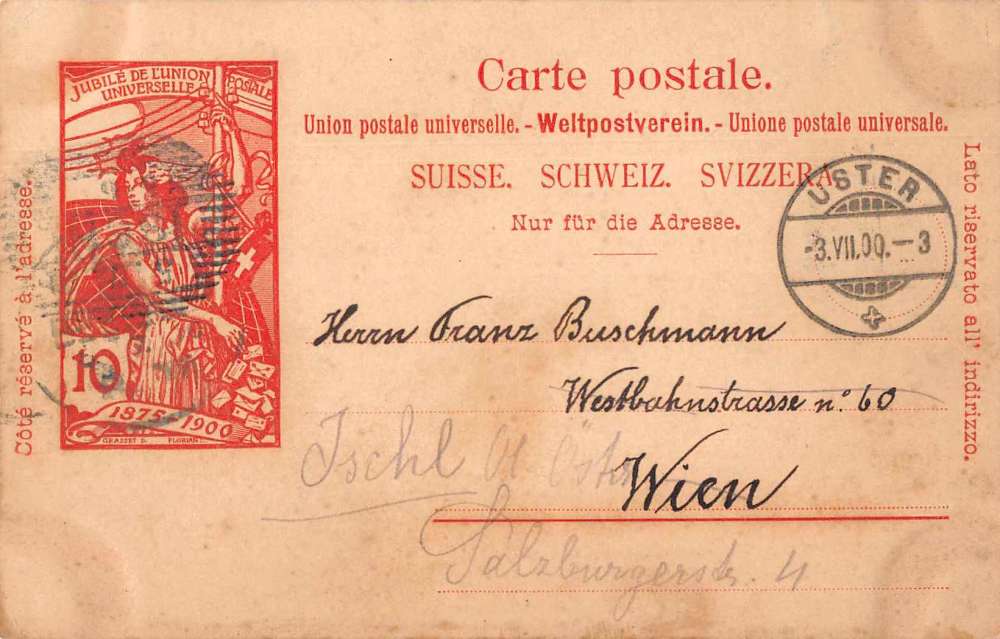 JUBILÉ DE L'UNION POSTALE
UNIVERSELLE
10
1875 1900
GRASSET D. FLORIAN
Côté réservé à l'adresse.
Carte postale.
Union postale universelle. - Weltpostverein. - Unione postale universale.
SUISSE. SCHWEIZ. SVIZZERA
Nur für die Adresse.
Lato riservato all' indirizzo.
USTER
-3.VII.00.-3
Herrn Franz Buschmann
Westbahnstrasse nº 60
Wien
Ischl
Salzburgerstr. 4